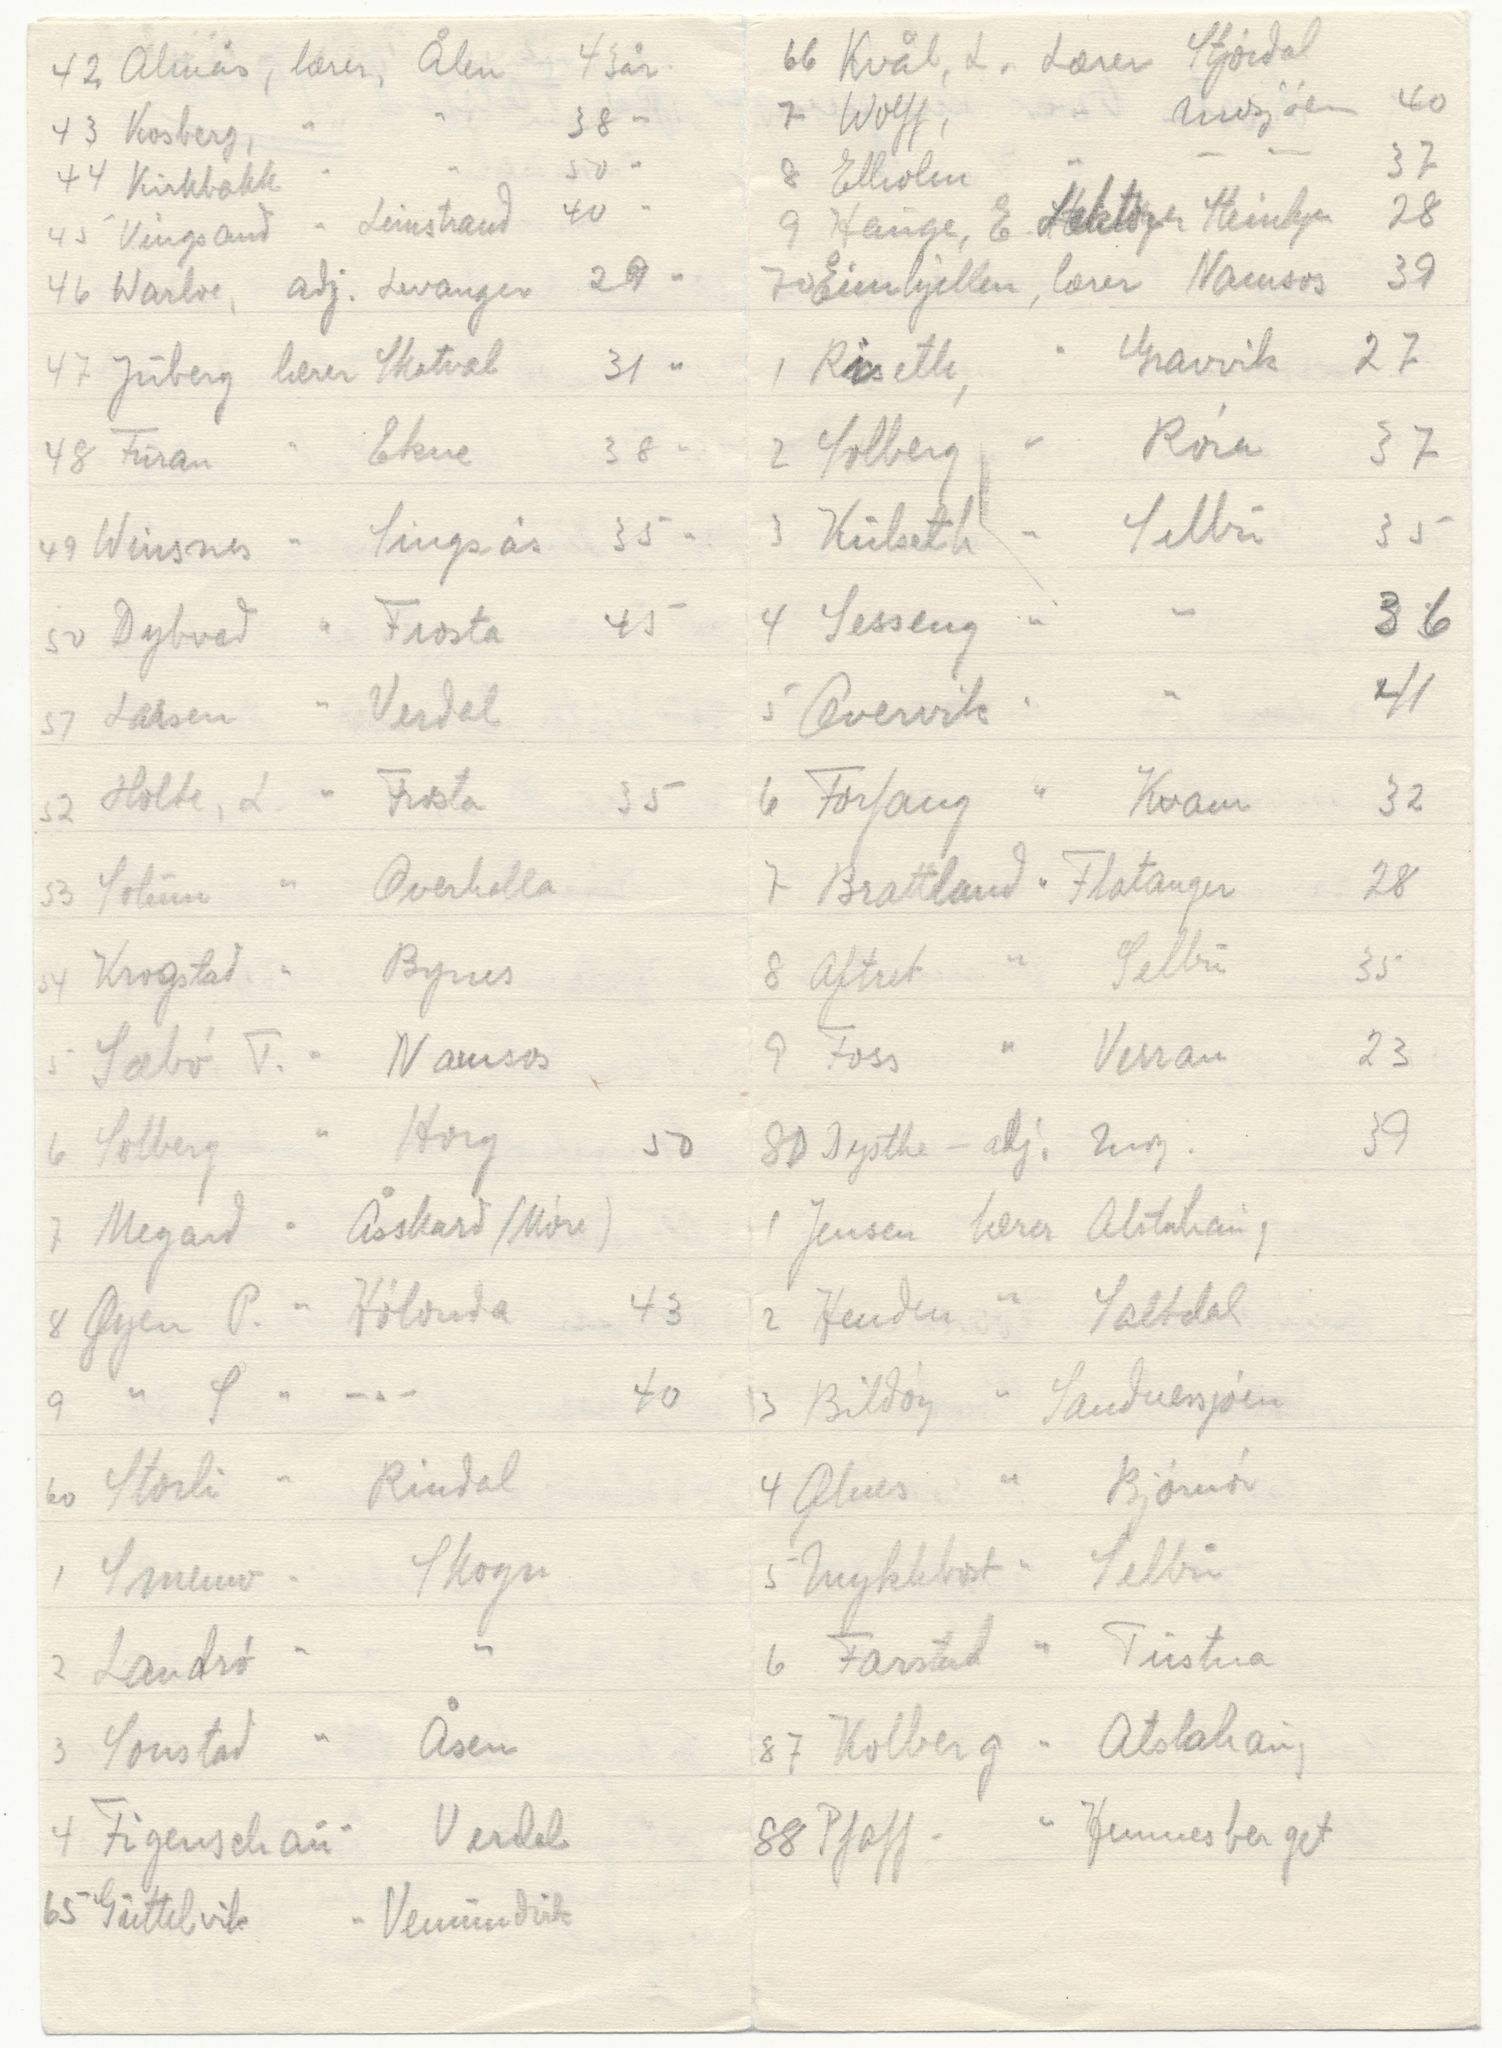 42 Almås, lærer, Ålen 43 år.
43 Kosberg, " " 38 "
44 Kirkbakk " " 50 "
45 Vingsand " Leinstrand 40 "
46 Warloe, adj. Levanger 29 "
47 Juberg lærer Skatval 31 "
48 Furan " Ekne 38 "
49 Winsnes " Singsås 35 "
50 Dybvad " Frosta 45
51 Larsen " Verdal
52 Holte, L. " Frosta 35
53 Solum " Overhalla
54 Krogstad " Bynes
5 Sæbø T. " Namsos
6 Solberg " Horg 50
7 Megard " Åsskard (Møre)
8 Øyen P. " Hølonda 43
9 " S " -"- 40
60 Størli " Rindal
1 Smemo " Skogn
2 Landrø " "
3 Sonstad " Åsen
4 Figenschau " Verdal
65 Guttelvik " Vemundvik
66 Kvål, L. Lærer Stjørdal
7 Wolff, " Mosjøen 40
8 Elholm " — — 37
9 Hauge, E. Steinkjer 28
70 Eimhjellen, lærer Namsos 39
1 Riseth, " Gravvik 27
2 Solberg " Røra 37
3 Kulseth " Selbu 35
4 Sesseng " " 36
5 Overvik " " 41
6 Forfang " Kvam 32
7 Brattland " Flatanger 28
8 Aftret " Selbu 35
9 Foss " Verran 23
80 Dysthe - adj. Mosj. 39
1 Jensen lærer Alstahaug
2 Henden " Saltdal
3 Bildøy " Sandnessjøen
4 Ølnes " Bjørnør
5 Myklebost " Selbu
6 Farstad " Tustna
87 Kolberg " Alstahaug
88 Pfaff - " Hemnesberget